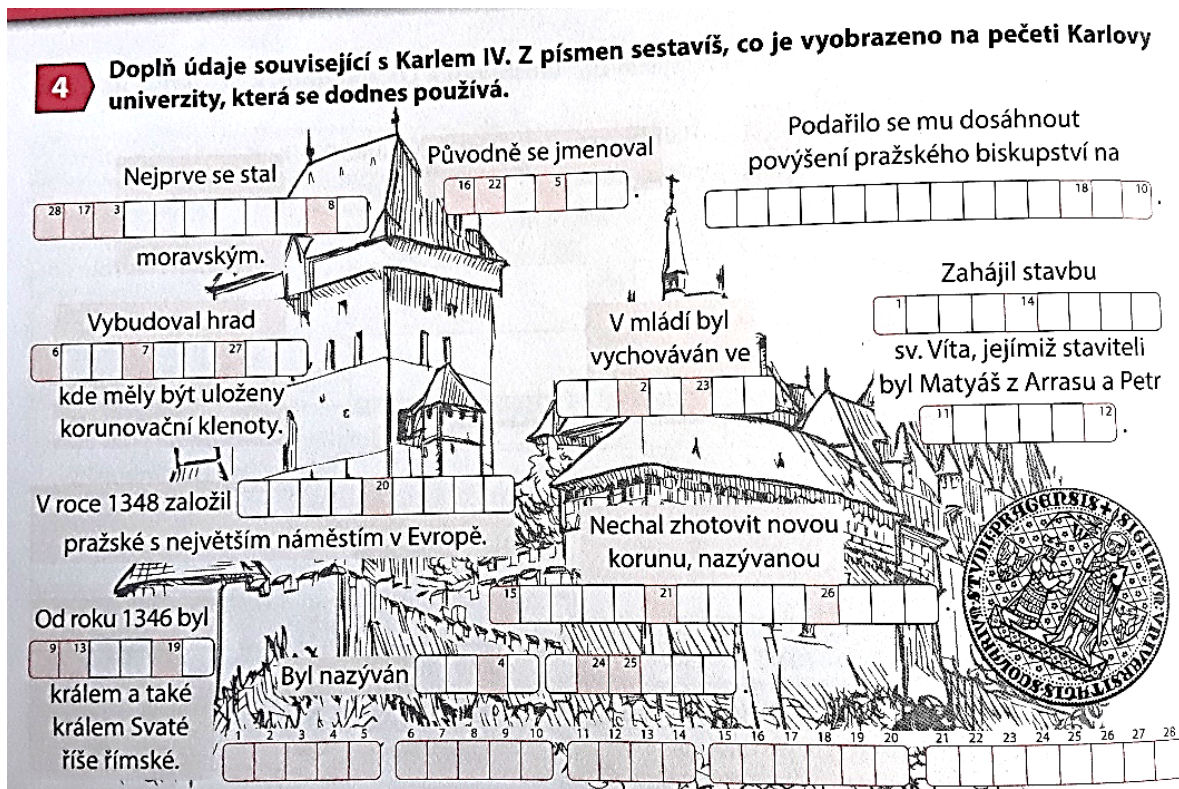 4
Doplň údaje související s Karlem IV. Z písmen sestavíš, co je vyobrazeno na pečeti Karlovy
univerzity, která se dodnes používá.
Nejprve se stal
28 17 3 8
moravským.
Původně se jmenoval
16 22 5 .
Podařilo se mu dosáhnout
povýšení pražského biskupství na
18 10 .
Vybudoval hrad
6 7 27
kde měly být uloženy
korunovační klenoty.
V mládí byl
vychováván ve
2 23 .
Zahájil stavbu
1 14
sv. Víta, jejímiž staviteli
byl Matyáš z Arrasu a Petr
11 12 .
V roce 1348 založil
20
pražské s největším náměstím v Evropě.
Nechal zhotovit novou
korunu, nazývanou
15 21 26 .
Od roku 1346 byl
9 13 19
králem a také
králem Svaté
říše římské.
Byl nazýván
4 24 25 .
1 2 3 4 5 6 7 8 9 10 11 12 13 14 15 16 17 18 19 20 21 22 23 24 25 26 27 28